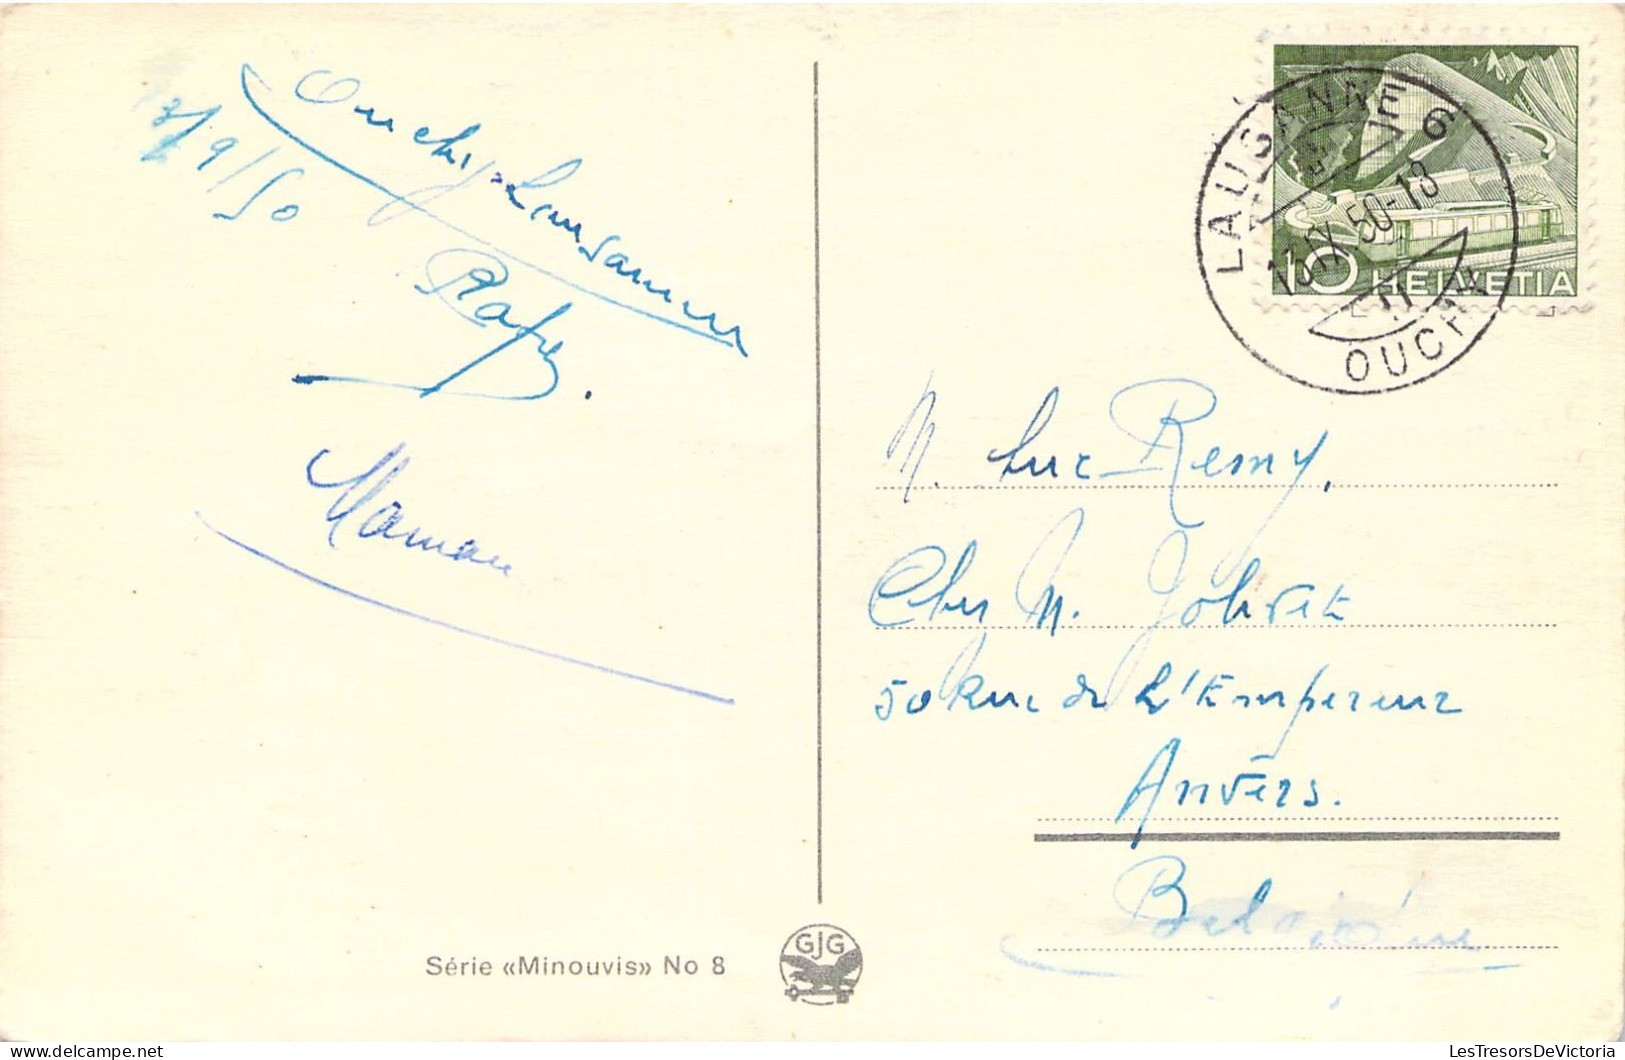 Ouchy-Lausanne
13/9/50
Maman
Série «Minouvis» No 8
GJG
LAUSANNE 6
13.IX.50-18
OUCHY
10 HELVETIA
M. Luc Remy,
Chez M.
50 Rue de L'Empereur
Anvers.
Belgique
LesTresorsDeVictoria